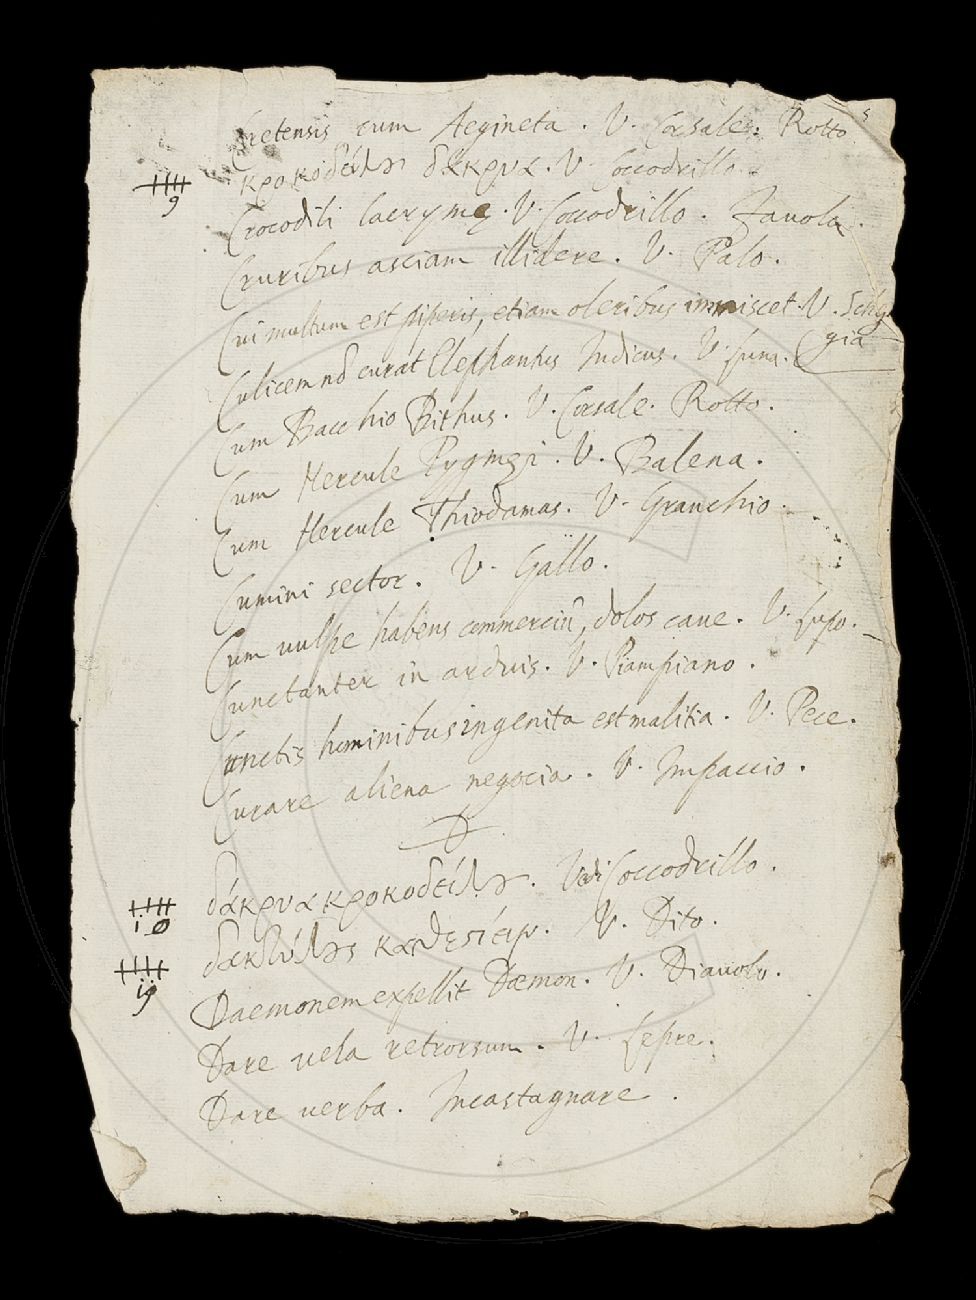 5
Cretensis cum Aegineta . V. Corsale. Rotto
κροκοδείλου δάκρυα . V. Coccodrillo .
9
Crocodili lacrymę . V. Coccodrillo . Fauola .
Cruribus asciam illidere . V. Palo .
Cui multum est piperis, etiam oleribus immiscet . V. Scheg
gia
Culicem nõ curat Elephantus Indicus . V. Luna .
Cum Bacchio Bithus . V. Corsale . Rotto .
Cum Hercule Pygmęi . V. Balena .
Cum Hercule Thiodamas . V. Granchio .
Cumini sector . V. Gallo .
Cum uulpe habens commerciũ, dolos caue . V. Lupo .
Cunctanter in arduis . V. Piampiano .
Cunctis hominibus ingenita est malitia . V. Pece .
Curare aliena negocia . V. Impaccio .
D
δάκρυα κροκοδείλου . Vedi Coccodrillo .
10
V. Dito .
11
Daemonem expellit Dæmon . V. Diauolo .
Dare uela retrorsum . V. Lepre .
Dare uerba . Incastagnare .